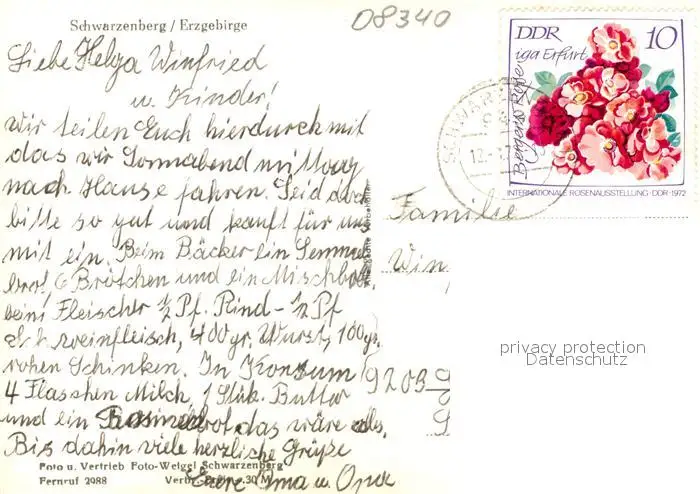 Schwarzenberg / Erzgebirge
08340
Liebe Helga Winfried
u. Kinder!
wir teilen Euch hierdurch mit
das wir Sonnabend mittag
nach Hause fahren. Seid doch
bitte so gut und kauft für uns
mit ein. Beim Bäcker ein Semmel
brot, 6 Brötchen und ein Mischbrot
beim Fleischer ½ Pf. Rind- ½ Pf
Schweinfleisch, 400 gr. Wurst, 100 gr.
rohen Schinken. In Konsum
4 Flaschen Milch, 1 Stük. Butter
und ein Rosinenbrot das wäre alles.
Bis dahin viele herzliche Grüße
Eure Oma u. Opa
Foto u. Vertrieb Foto-Weigel Schwarzenberg
Fernruf 2988
DDR 10
iga Erfurt
Bergers Rose
INTERNATIONALE ROSENAUSSTELLUNG · DDR · 1972
Familie
Win
9203
privacy protection
Datenschutz